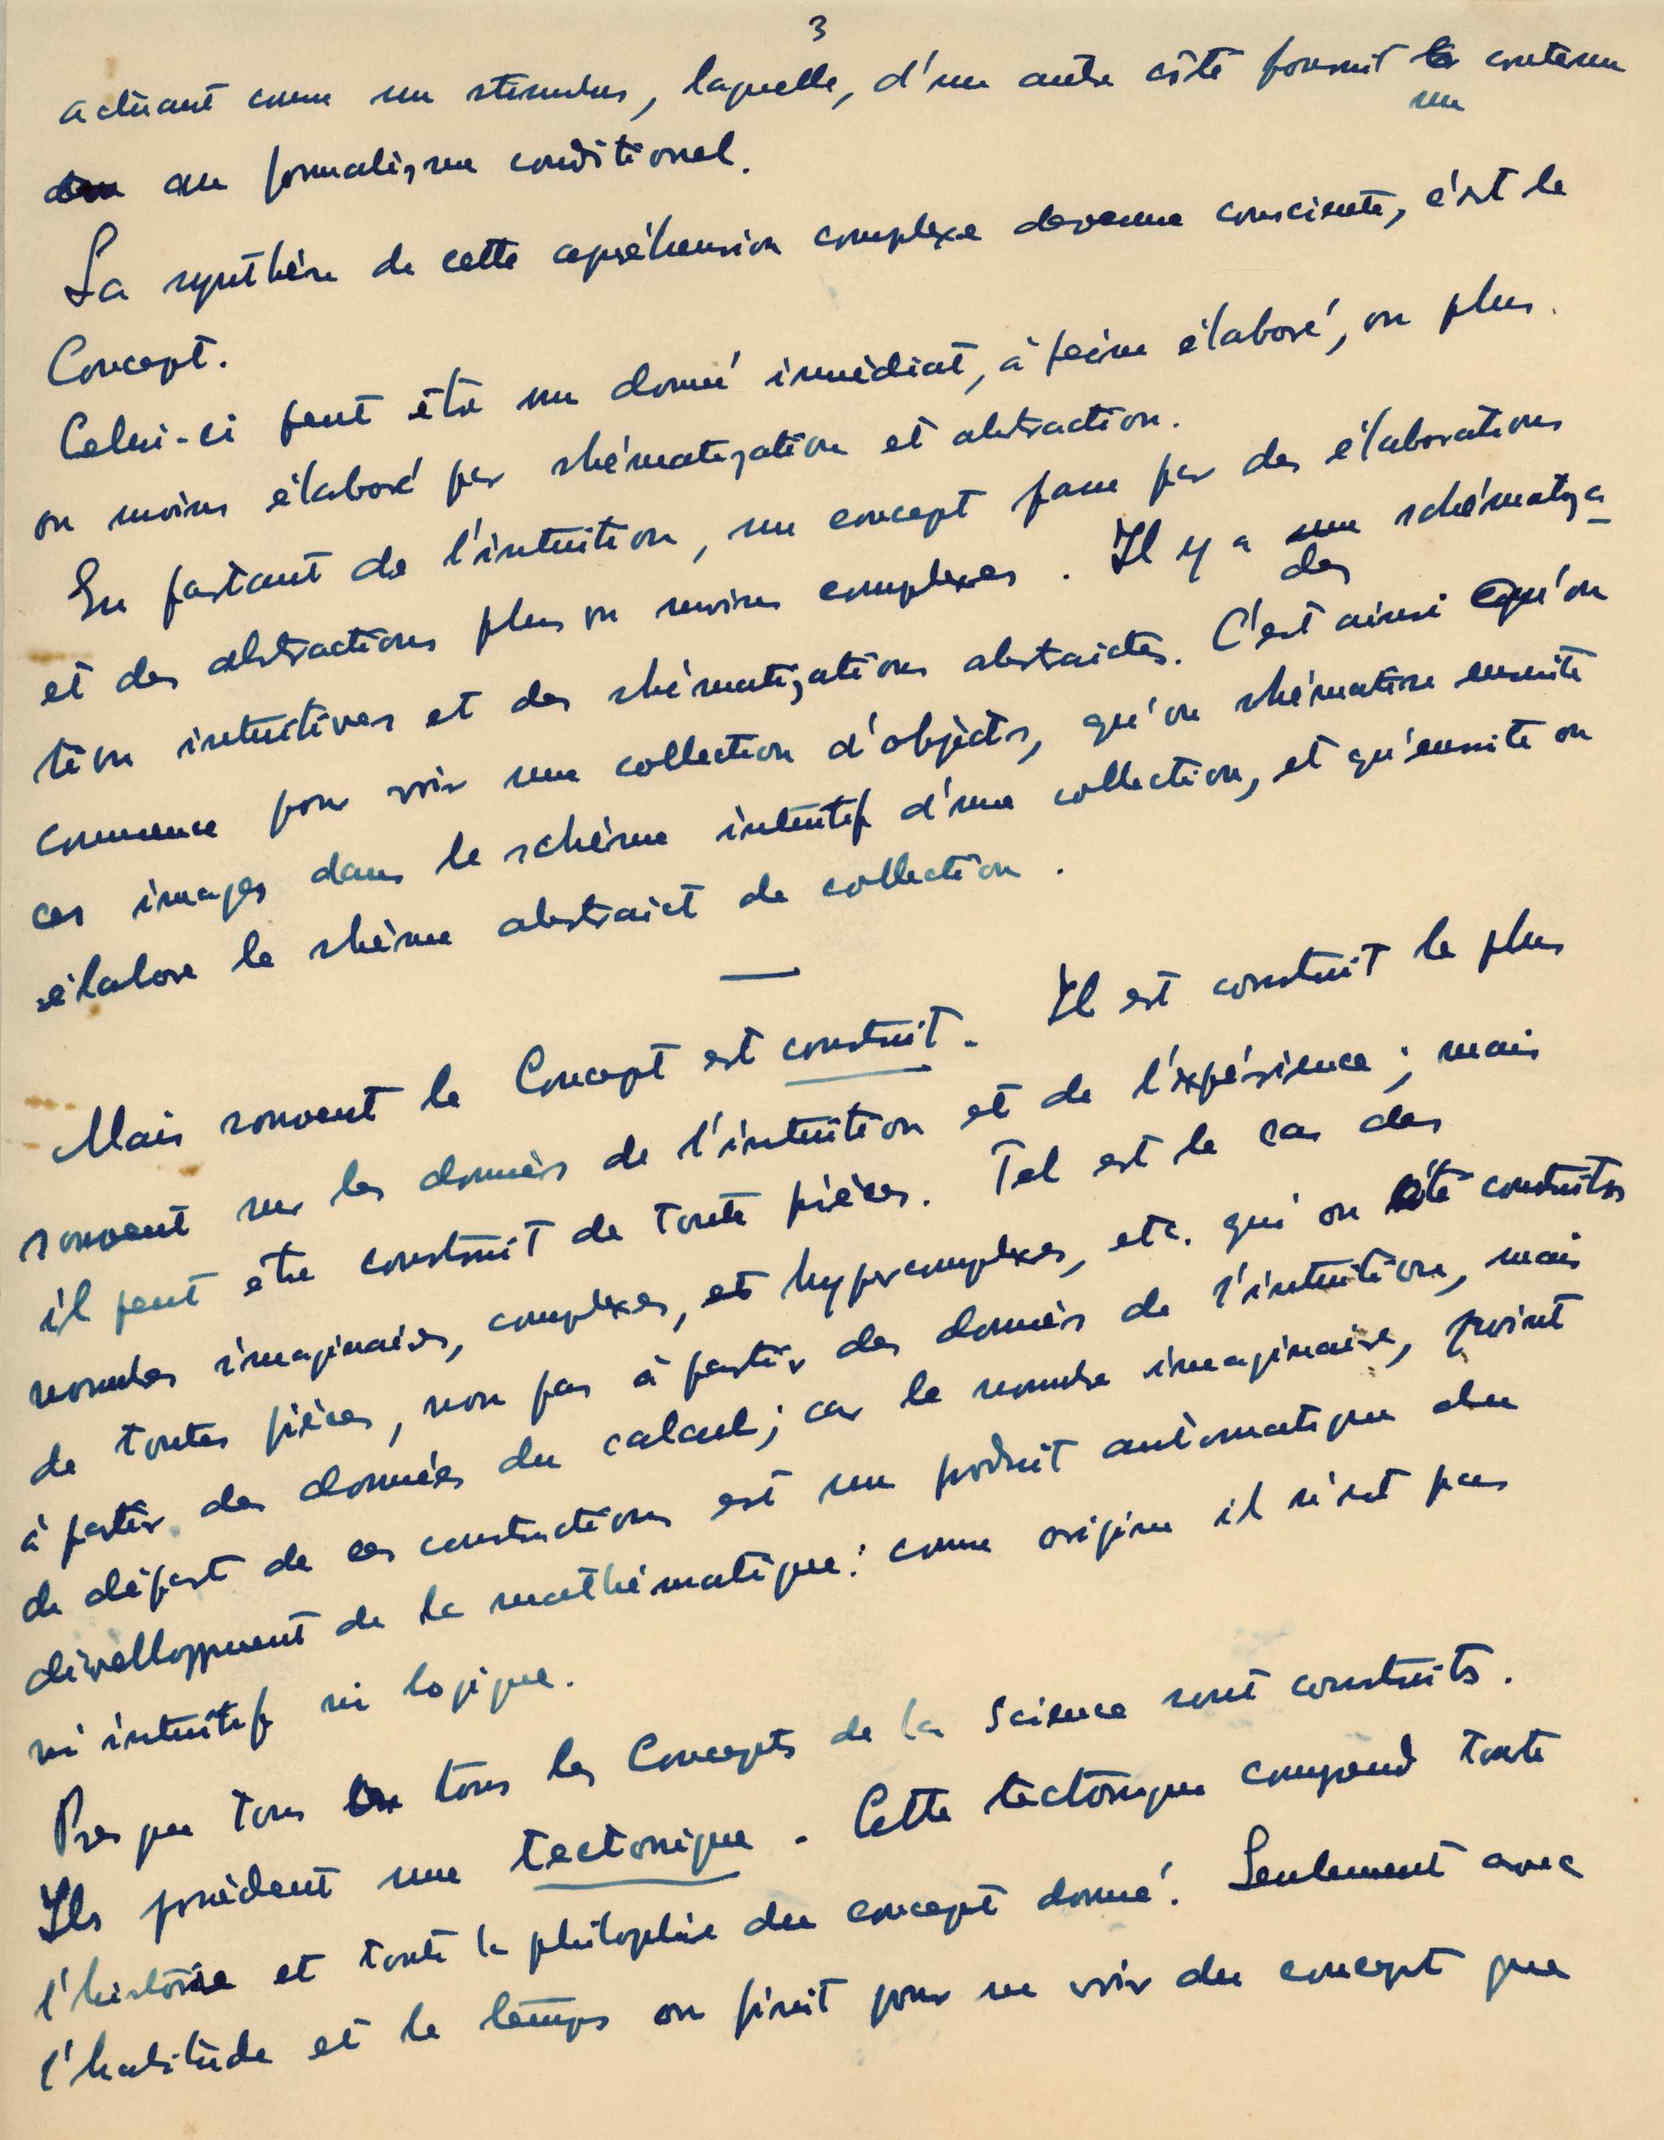 3
actuant comme un stimulus, laquelle, d'un autre côté fournit le contenu
un
au formalisme conditionel.
La synthèse de cette appréhension complexe devenue consciente, c'est le
Concept.
Celui-ci peut être un donné immédiat, à peine élaboré, ou plus
ou moins élaboré par shématization et abstraction.
En partant de l'intuition, un concept passe par des élaborations
et des abstractions plus ou moins complexes. Il y a une schématiza
des
tion intuitives et des shématizations abstraictes. C'est ainsi qu'on
commence pour voir une collection d'objècts, qu'on shématise ensuite
ces images dans le schème intuitif d'une collection, et qu'ensuite on
élabore le shème abstraict de collection.
Mais souvent le Concept est construit. Il est construit le plus
souvent sur les donnés de l'intuition et de l'expérience; mais
il peut être construit de toute pièces. Tel est le cas des
nombes imaginaires, complexes, et hypercomplexes, etc. qui on été construites
de toutes pièces, non pas à partir des donnés de l'intuition, mais
à partir des données du calcul; car le nombre imaginaire, point
de départ de ces constructions est un produit automatique du
dévelloppment de la mathématique: comme origine il n'est pas
ni intuitif ni logique.
Presque tous tous les Concepts de la Science sont construits.
Ils possèdent une tectonique. Cette tectonique comprend toute
l'histoire et toute la philophie du concept donné. Seulement avec
l'habitude et le temps on finit pour ne voir du concept que